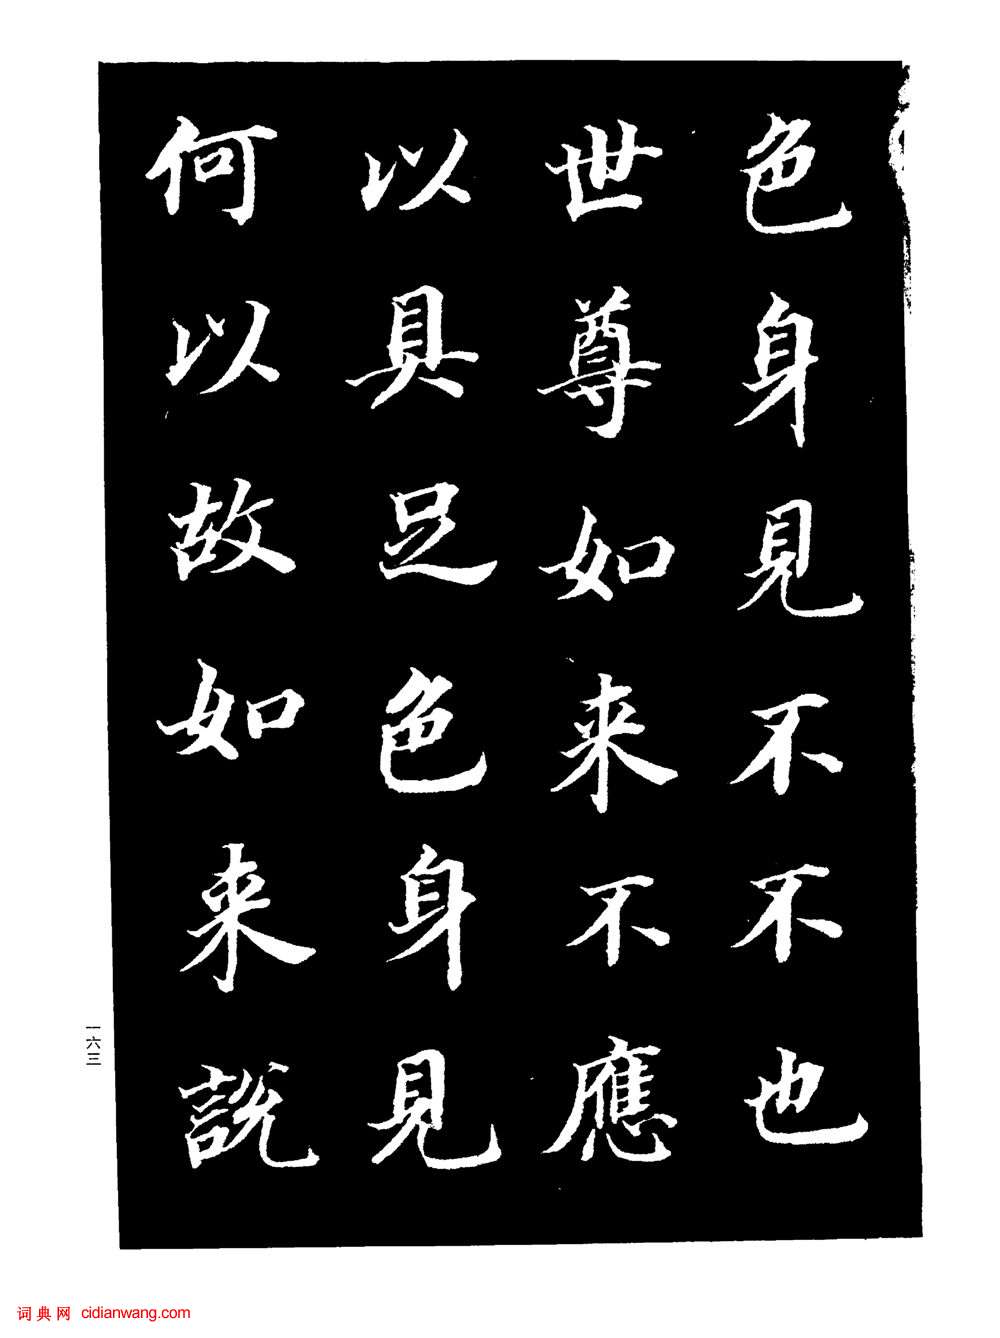 色身見不不也
世尊如来不應
以具足色身見
何以故如来說
一六三
词典网 cidianwang.com